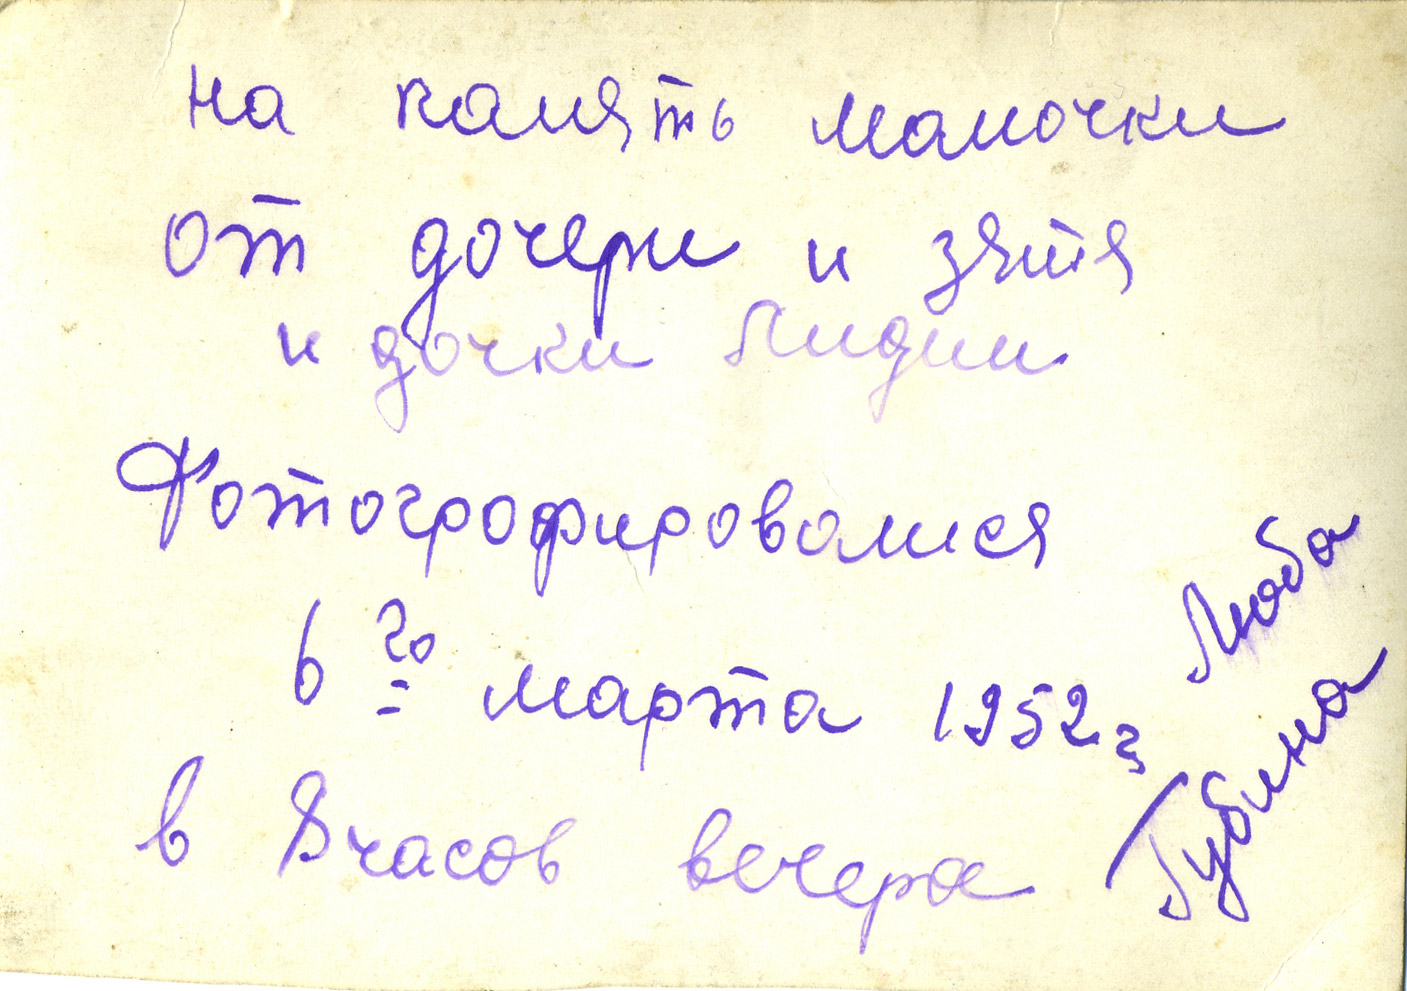 на память мамочки
от дочери и зятя
и дочки Лидии
Фотогрофироволися
6го марта 1952 г
в 8 часов вечера
Люба
Губина